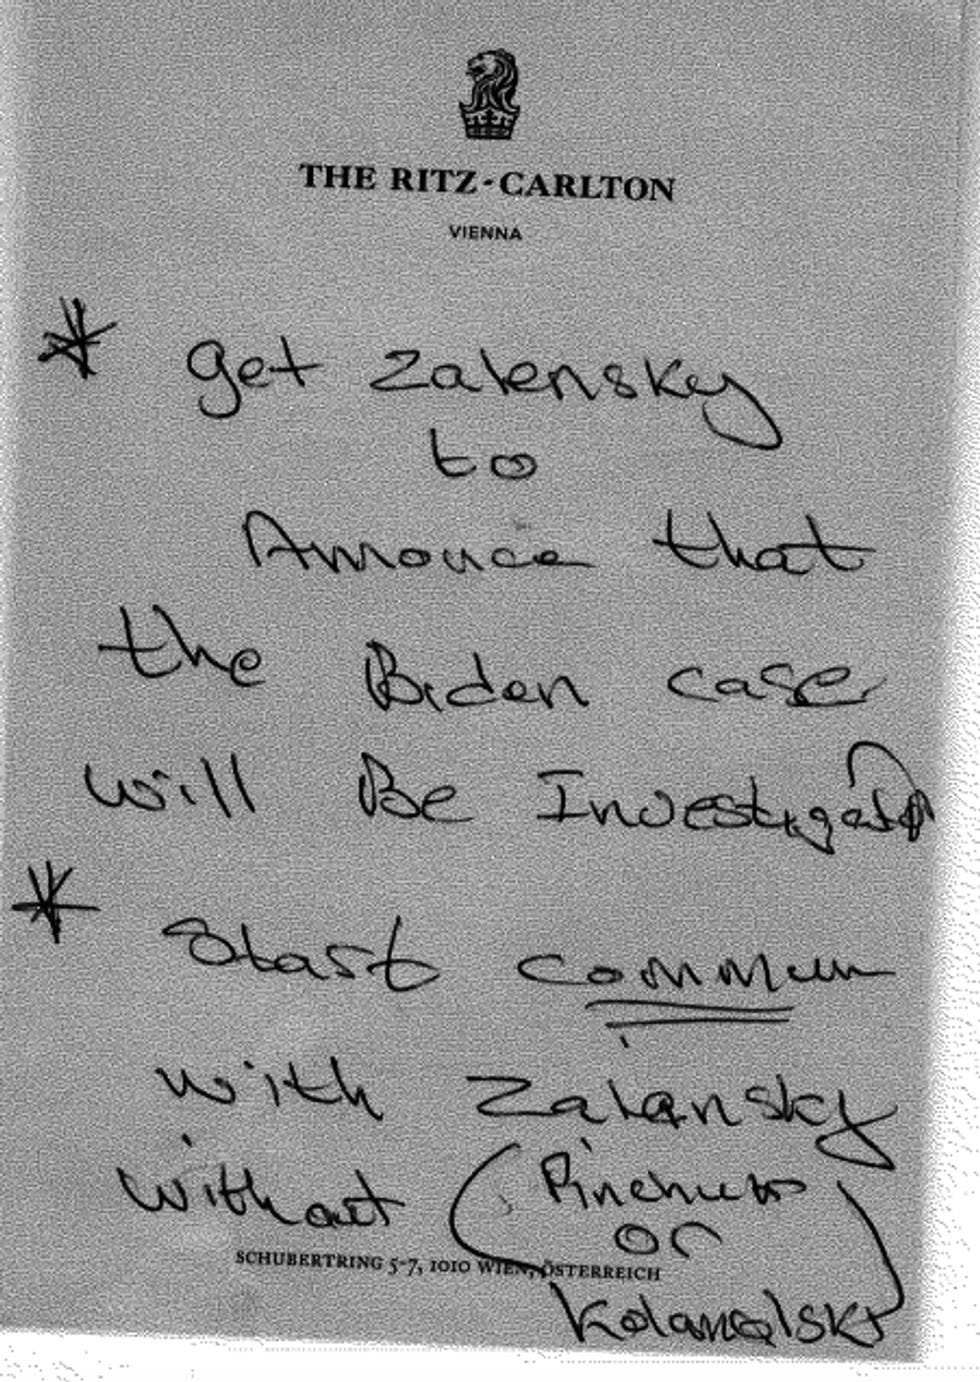 THE RITZ-CARLTON
VIENNA
* get Zalensky
to
Annouce that
the Biden case
will Be Investigated
* start commun
with Zalensky
without (Pinchuk
or
SCHUBERTRING 5-7, 1010 WIEN, ÖSTERREICH
Kolamalsky)